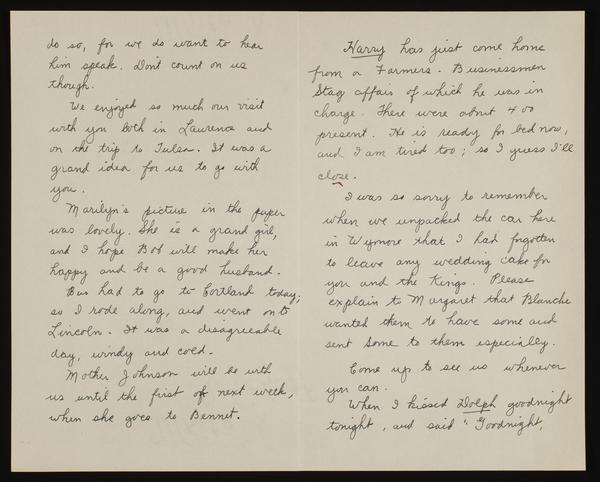 do so, for we do want to hear
him speak. Don't count on us
though.
We enjoyed so much our visit
with you both in Lawrence and
on the trip to Tulsa. It was a
grand idea for us to go with
you.
Marilyn's picture in the paper
was lovely. She is a grand girl,
and I hope Bob will make her
happy and be a good husband.
Bus had to go to Cortland today;
so I rode along, and went on to
Lincoln. It was a disagreeable
day, windy and cold.
Mother Johnson will be with
us until the first of next week,
when she goes to Bennet.
Harry has just come home
from a Farmers - Businessmen
Stag affair of which he was in
charge. There were about 400
present. He is ready for bed now,
and I am tired too; so I guess I'll
close.
I was so sorry to remember
when we unpacked the car here
in Wymore that I had forgotten
to leave any wedding cake for
you and the Kings. Please
explain to Margaret that Blanche
wanted them to have some and
sent some to them especially.
Come up to see us whenever
you can.
When I kissed Dolph goodnight
tonight, and said "Goodnight,